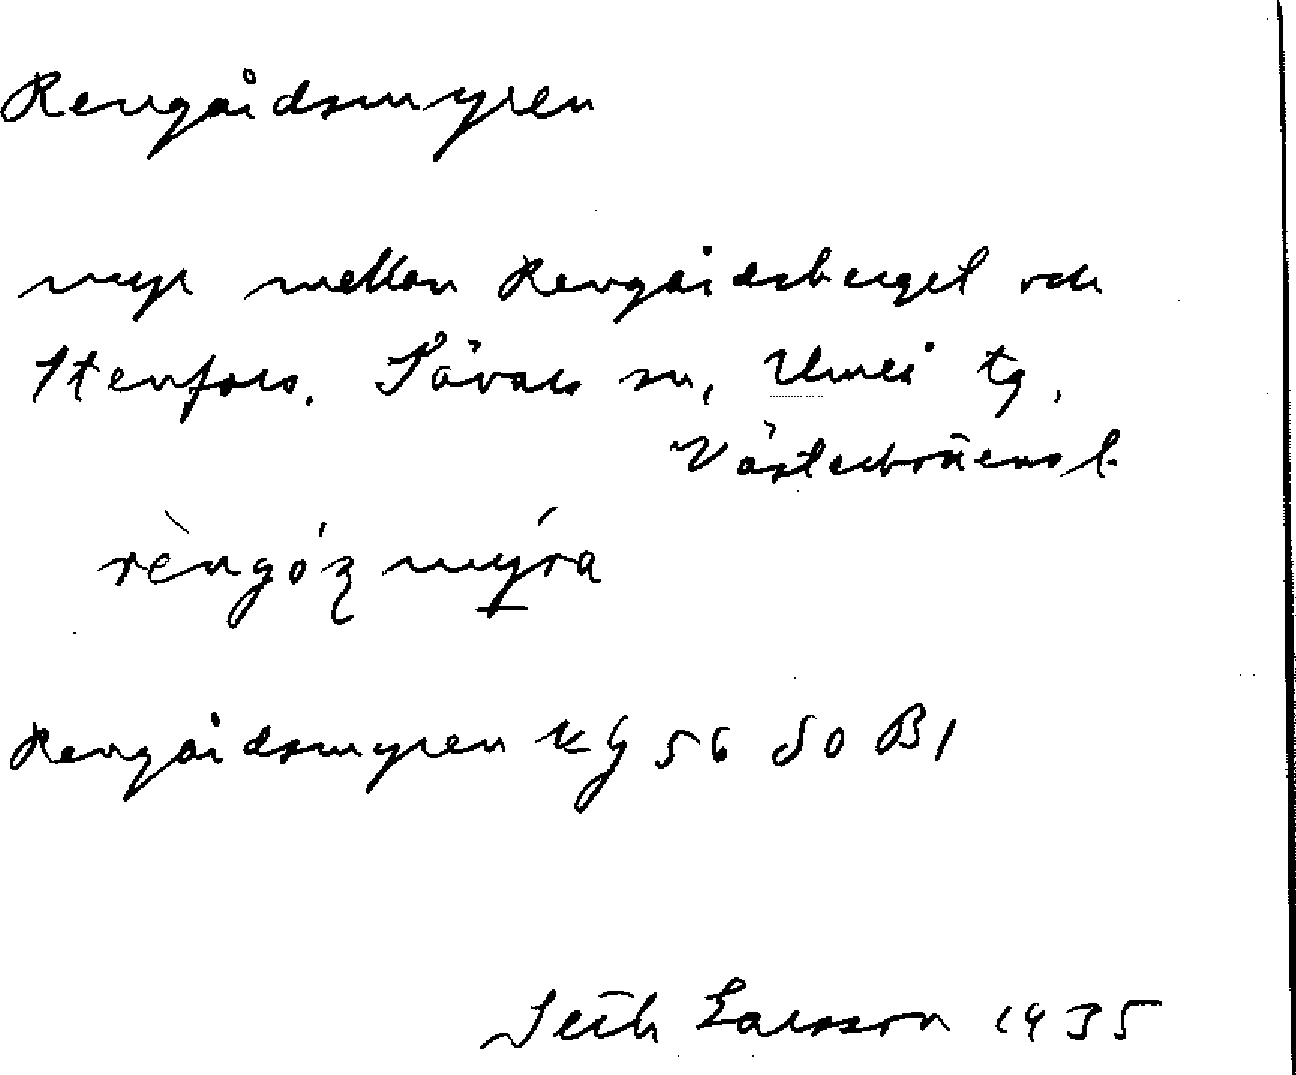 Rengårdsmyren
myr mellan Rengårdsberget och
Stenfors. Sävars sn, Umeå tg.
Västerbottens l.
rèngó̗ʒmýra
Rengårdsmyren kg 56 S0 B1
Seth Larsson 1935